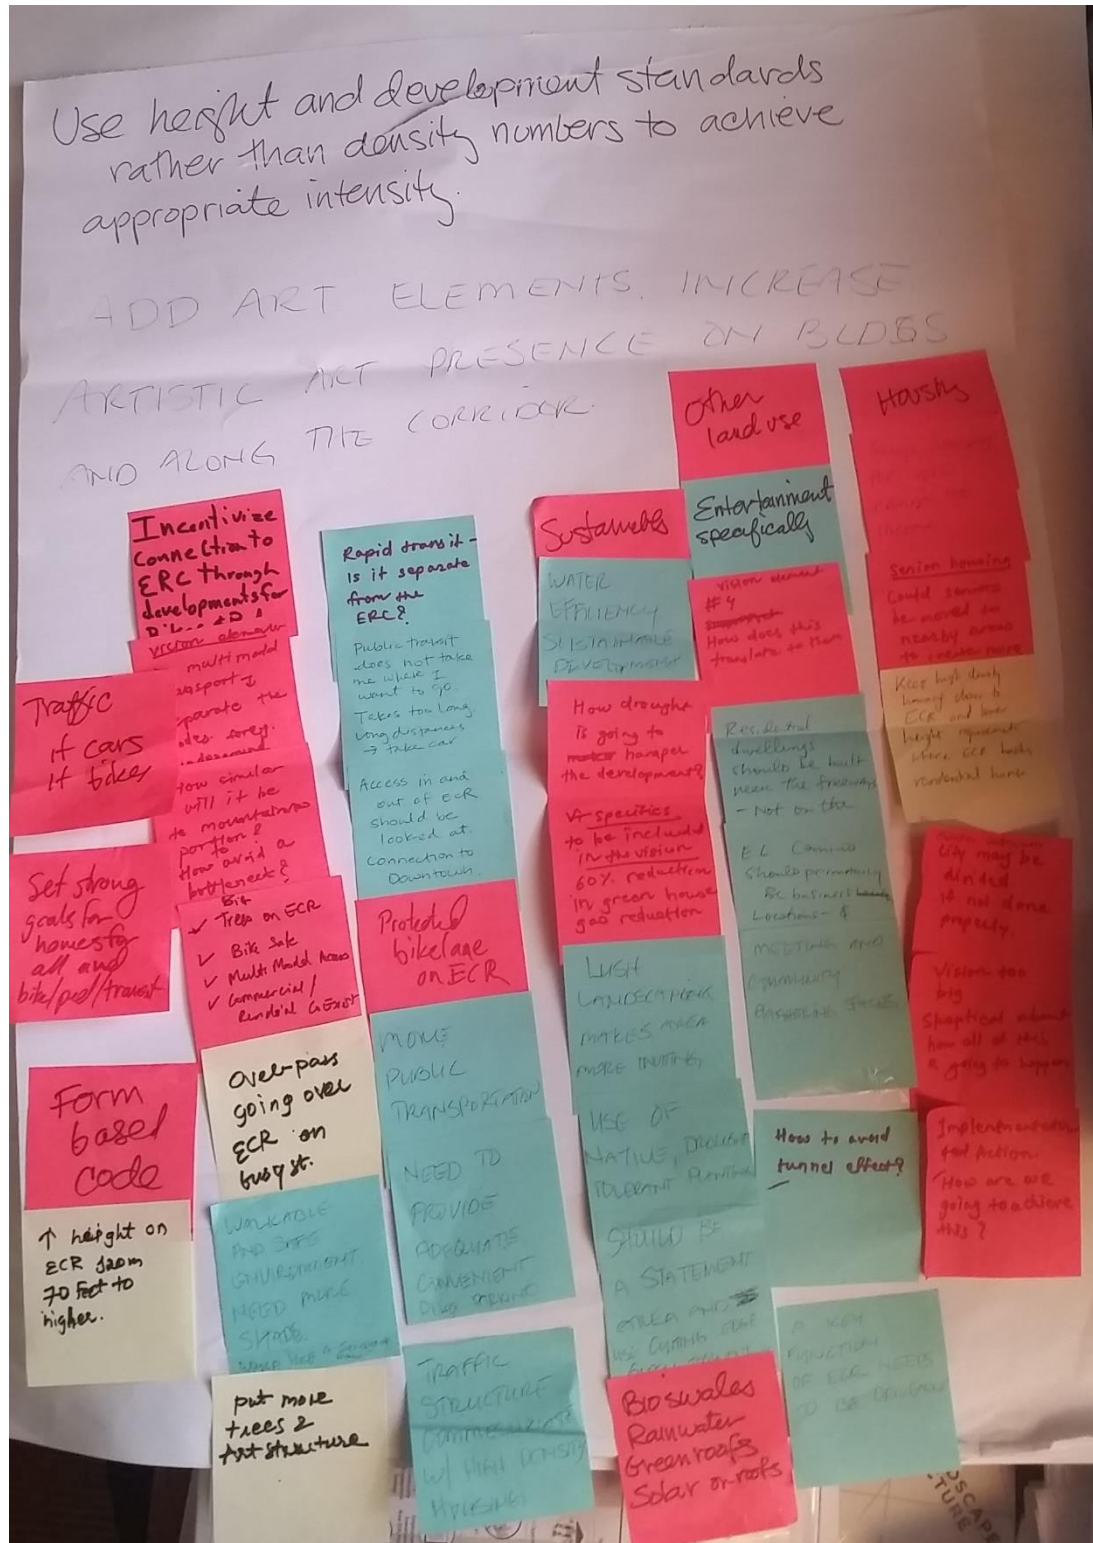 Use height and development standards
rather than density numbers to achieve
appropriate intensity.
ADD ART ELEMENTS. INCREASE
ARTISTIC ART PRESENCE ON BLDGS
AND ALONG THE CORRIDOR.
Incentivize
connection to
ERC through
developments for
vision element
multi modal
the
How similar
will it be
to mountain
portion?
How avoid a
bottleneck?
Trees on ECR
✓ Bike Safe
✓ Multi Model Access
✓ Commercial /
CoExist
Over-pass
going over
ECR on
busy st.
WALKABLE
AND SAFE
ENVIRONMENT
NEED MORE
SHADE.
put more
trees &
Art structure
Traffic
if cars
if bikes
Set strong
goals for
homes for
all and
bike/ped/transit
Form
based
code
↑ height on
ECR from
70 feet to
higher.
Rapid transit -
Is it separate
from the
ERC?
Public transit
does not take
me where I
want to go.
Takes too long
long distances
→ take car
Access in and
out of ECR
should be
looked at.
Connection to
Downtown.
Protected
bike lane
on ECR
MORE
PUBLIC
TRANSPORTATION
NEED TO
PROVIDE
ADEQUATE
CONVENIENT
TRAFFIC
STRUCTURE
COMMENSURATE
W/ HIGH DENSITY
HOUSING
Sustainable
WATER
EFFICIENCY
SUSTAINABLE
DEVELOPMENT
How drought
is going to
hamper
the development?
specifics
to be included
in the vision
60% reduction
in green house
gas reduction
LUSH
LANDSCAPING
MAKES AREA
MORE INVITING
USE OF
NATIVE, DROUGHT
TOLERANT PLANTING
SHOULD BE
A STATEMENT
AREA AND
USE CUTTING EDGE
Bioswales
Rainwater
Green roofs
Solar on roofs
Other
land use
Entertainment
specifically
vision element
#4
How does this
translate to
Residential
dwellings
should be built
near the freeways
- Not on the
EL Camino
should primarily
be business
Locations - &
MEETING AND
COMMUNITY
GATHERING PLACES
How to avoid
tunnel effect?
A KEY
FUNCTION
OF ECR NEEDS
TO BE
Housing
Senior housing
Could seniors
be moved to
nearby areas
to create more
Keep high density
housing close to
ECR and lower
height requirements
where ECR backs
residential homes
City may be
divided
if not done
properly.
Vision too
big
Skeptical about
how all of this
is going to happen
Implementation
and Action.
How are we
going to achieve
this?